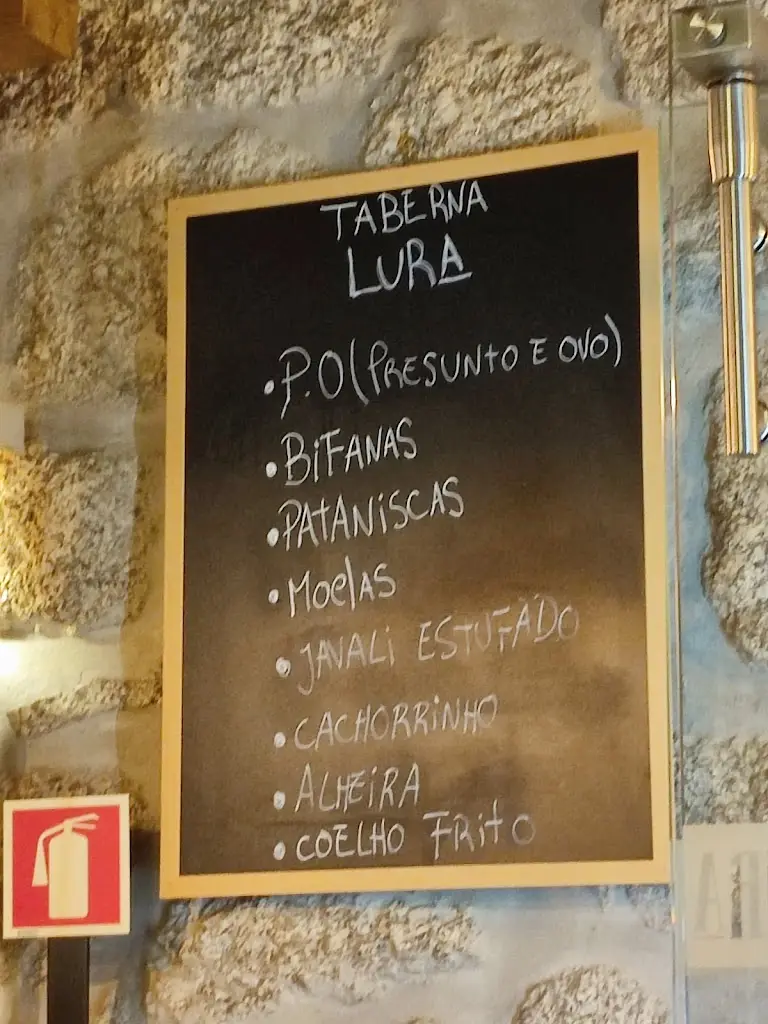 TABERNA
LURA
• P.O (PRESUNTO E OVO)
• BIFANAS
• PATANISCAS
• MOELAS
• JAVALI ESTUFADO
• CACHORRINHO
• ALHEIRA
• COELHO FRITO